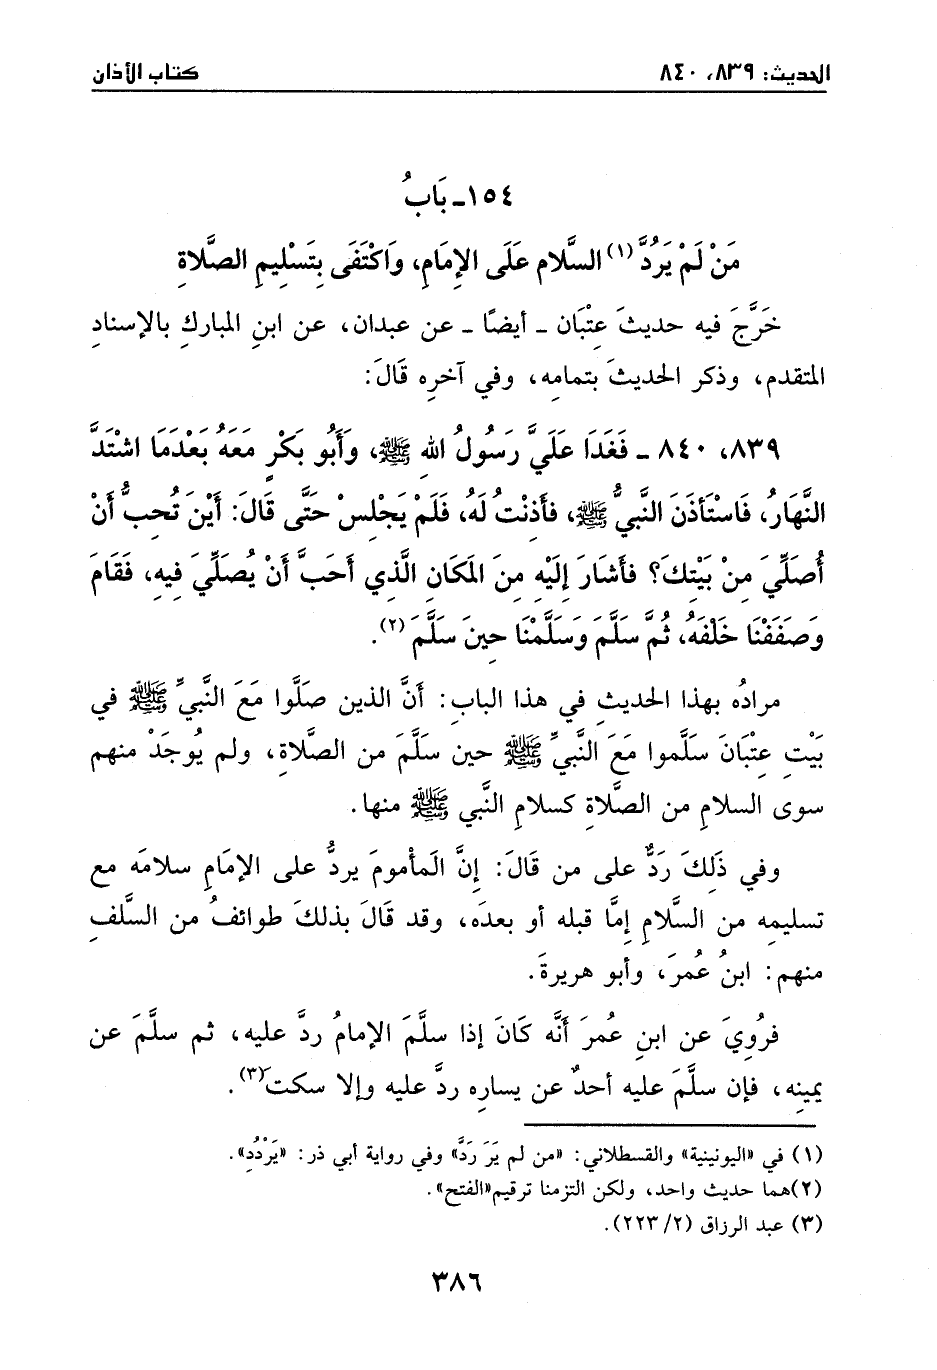 الحديث: ٨٣٩، ٨٤٠
كتاب الأذان
١٥٤ـ بَابُ
مَنْ لَمْ يَرُدَّ (١) السَّلام عَلَى الإِمَامِ، وَاكْتَفَى بِتَسْلِيمِ الصَّلاةِ
خَرَّجَ فيه حديثَ عِتْبَان ـ أيضًا ـ عن عبدان، عن ابنِ المباركِ بالإسنادِ
المتقدم، وذكر الحديثَ بتمامِه، وفي آخرِه قَالَ:
٨٣٩، ٨٤٠ ـ فَغَدَا عَلَيَّ رَسُولُ اللهِ ﷺ، وَأَبُو بَكْرٍ مَعَهُ بَعْدَمَا اشْتَدَّ
النَّهَارُ، فَاسْتَأذَنَ النَّبِيُّ ﷺ، فَأذِنْتُ لَهُ، فَلَمْ يَجْلِسْ حَتَّى قَالَ: أَيْنَ تُحِبُّ أَنْ
أُصَلِّيَ مِنْ بَيْتِكَ؟ فأشَارَ إِلَيْهِ مِنَ المَكَانِ الَّذِي أَحَبَّ أَنْ يُصَلِّيَ فِيهِ، فَقَامَ
وَصَفَفْنَا خَلْفَهُ، ثُمَّ سَلَّمَ وَسَلَّمْنَا حِينَ سَلَّمَ (٢).
مرادُه بهذا الحديثِ في هذا البابِ: أَنَّ الذين صَلَّوا مَعَ النَّبيِّ ﷺ في
بَيْتِ عِتْبَانَ سَلَّموا مَعَ النَّبيِّ ﷺ حين سَلَّمَ من الصَّلاةِ، ولم يُوجَدْ منهم
سوى السلامِ من الصَّلاةِ كسلامِ النَّبي ﷺ منها.
وفي ذَلِكَ رَدٌّ على من قَالَ: إِنَّ المأمومَ يردُّ على الإمَامِ سلامَه مع
تسليمِه من السَّلامِ إمَّا قبله أو بعدَه، وقد قَالَ بذلكَ طوائفُ من السَّلفِ
منهم: ابنُ عُمرَ، وأبو هريرةَ.
فرُوِيَ عن ابنِ عُمرَ أنَّه كَانَ إذا سلَّمَ الإمامُ ردَّ عليه، ثم سلَّمَ عن
يمينِه، فإن سلَّمَ عليه أحدٌ عن يسارِه ردَّ عليه وإلا سكتَ(٣).
(١) في «اليونينية» والقسطلاني: «من لم يَرَ رَدَّ» وفي رواية أبي ذر: «يَرْدُدِ».
(٢)هما حديث واحد، ولكن التزمنا ترقيم«الفتح».
(٣) عبد الرزاق (٢/ ٢٢٣).
٣٨٦